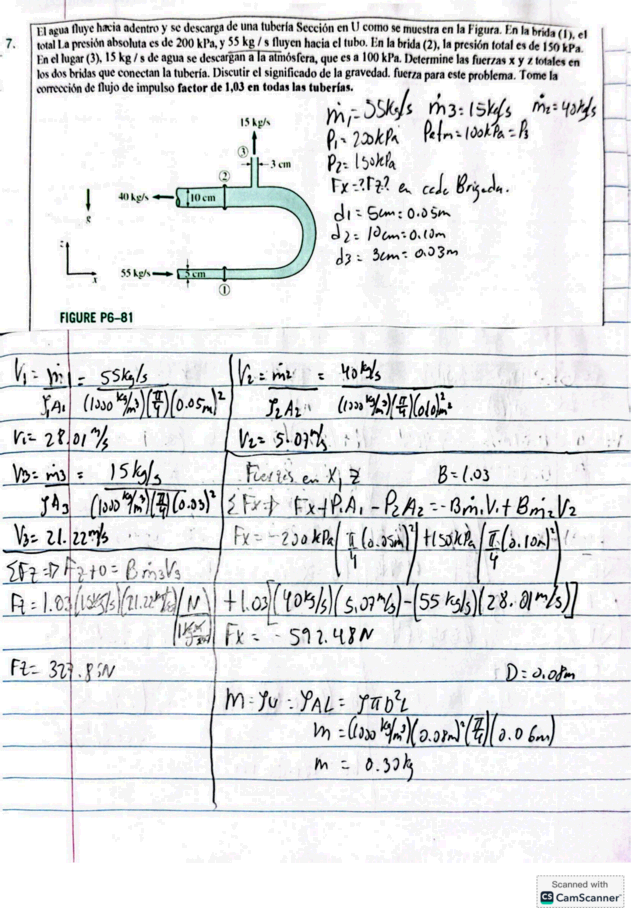 7. El agua fluye hacia adentro y se descarga de una tubería Sección en U como se muestra en la Figura. En la brida (1), el
total La presión absoluta es de 200 kPa, y 55 kg / s fluyen hacia el tubo. En la brida (2), la presión total es de 150 kPa.
En el lugar (3), 15 kg / s de agua se descargan a la atmósfera, que es a 100 kPa. Determine las fuerzas x y z totales en
los dos bridas que conectan la tubería. Discutir el significado de la gravedad. fuerza para este problema. Tome la
corrección de flujo de impulso factor de 1,03 en todas las tuberías.
ṁ1=55kg/s ṁ3=15kg/s ṁ2=40kg/s
P1=200kPa Patm=100kPa=P3
P2=150kPa
Fx=? Fz? en cada Brigada.
d1=5cm=0.05m
d2=10cm=0.10m
d3=3cm=0.03m
15 kg/s
③
3 cm
②
40 kg/s
10 cm
g
z
x
55 kg/s
5 cm
①
FIGURE P6-81
V1=ṁ1/ρ1A1=55kg/s/(1000 kg/m³)(π/4)(0.05m)²
V1=28.01 m/s
V2=ṁ2/ρ2A2=40kg/s/(1000 kg/m³)(π/4)(0.10)²m²
V2=5.07m/s
V3=ṁ3/ρA3=15kg/s/(1000 kg/m³)(π/4)(0.03)²
V3=21.22m/s
Fuerzas en x, z B=1.03
ΣFx⇒ Fx+P1A1-P2A2=-Bṁ1V1+Bṁ2V2
Fx=-200kPa(π/4(0.05m)²)+150kPa(π/4(0.10m)²)
+1.03[(40kg/s)(5.07m/s)-(55kg/s)(28.01m/s)]
Fx=-592.48N
ΣFz⇒Fz+0=Bṁ3V3
Fz=1.03(15kg/s)(21.22m/s)
Fz=327.85N
D=0.08m
m=ρv=ρAL=ρπD²L
m=(1000 kg/m³)(0.08m)²(π/4)(0.06m)
m=0.30kg
Scanned with
CS CamScanner